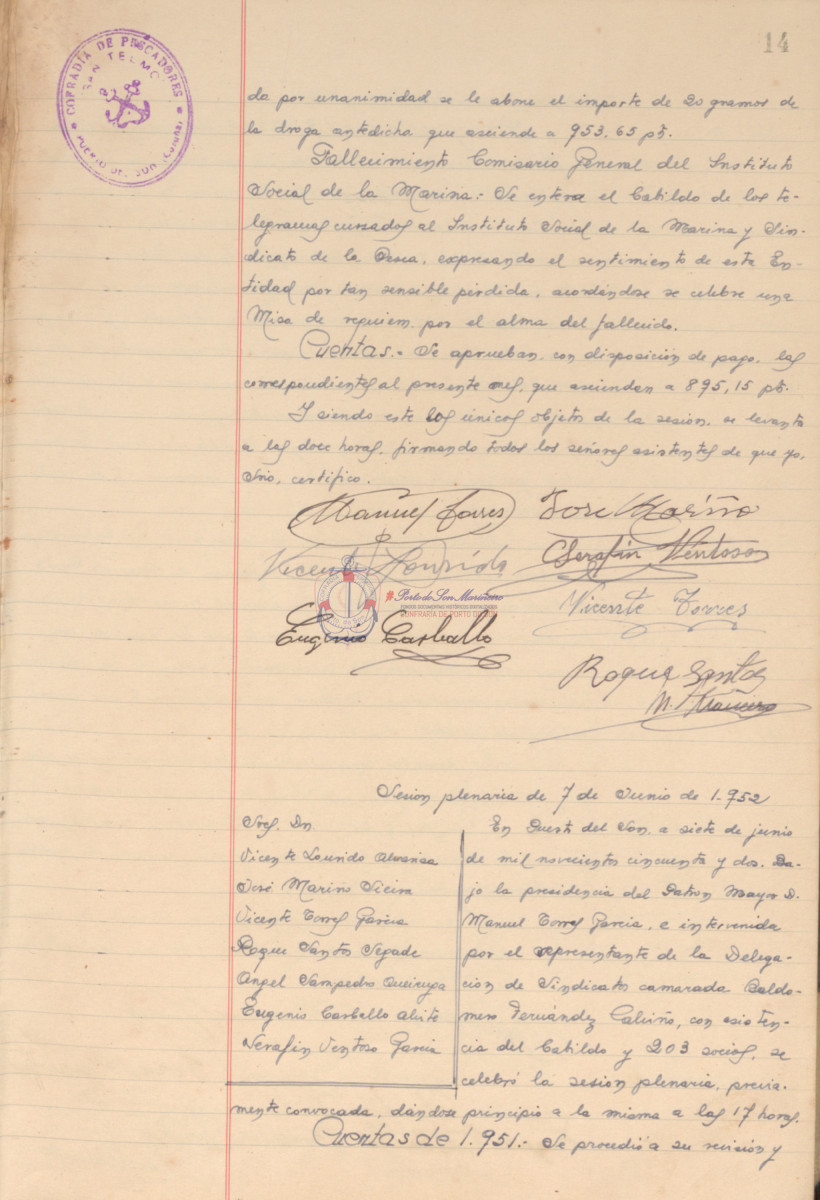 14
COFRADÍA DE PESCADORES
SAN TELMO
PUERTO DEL SON (Coruña)
do por unanimidad se le abone el importe de 20 gramos de
la droga antedicha que asciende a 953,65 pts.
Fallecimiento Comisario General del Instituto
Social de la Marina:- Se entera el Cabildo de los te-
legramas cursados al Instituto Social de la Marina y Sin-
dicato de la Pesca, expresando el sentimiento de esta En-
tidad por tan sensible pérdida, acordándose se celebre una
Misa de requiem por el alma del fallecido.
Cuentas.- Se aprueban, con disposición de pago, las
correspondientes al presente mes, que ascienden a 895,15 pts.
Y siendo este los únicos objetos de la sesión, se levanta
a las doce horas, firmando todos los señores asistentes de que yo,
Srio, certifico.
Manuel Torres José Mariño
Vicente Lourido Serafín Ventoso
#Porto do Son Mariñeiro
CONFRARÍA DE PORTO DO SON
Vicente Torres
Eugenio Carballo
Roque Santos
Sesión plenaria de 7 de Junio de 1.952
Sres. Dn
Vicente Lourido
José Mariño Vieira
Vicente Torres García
Roque Santos Segade
Angel Sampedro Queiruga
Eugenio Carballo
Serafín Ventoso García
En Puerto del Son, a siete de junio
de mil novecientos cincuenta y dos. Ba-
jo la presidencia del Patron Mayor D.
Manuel Torres García, e intervenida
por el representante de la Delega-
ción de Sindicatos camarada Baldo-
mero Fernández Calviño, con asisten-
cia del Cabildo y 203 socios, se
celebró la sesión plenaria, previa-
mente convocada, dándose principio a la misma a las 17 horas.
Cuentas de 1.951.- Se procedió a su revisión y